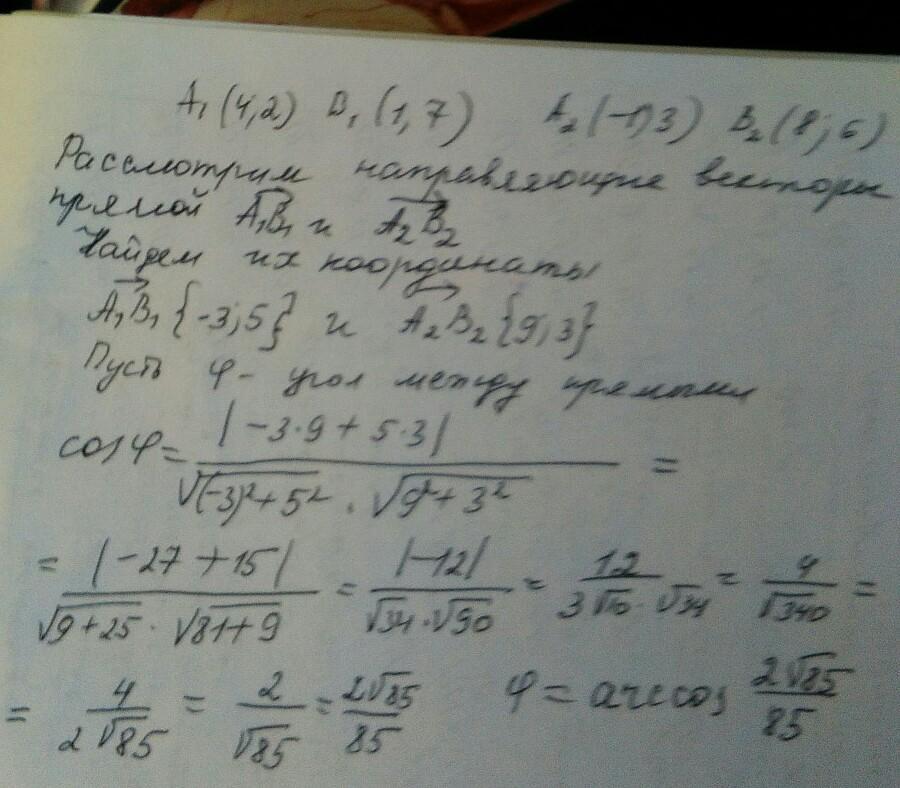 A₁(4,2) B₁(1,7) A₂(-1;3) B₂(8;6)
Рассмотрим направляющие векторы
прямой A₁B₁ и A₂B₂
Найдем их координаты
A₁B₁{-3;5} и A₂B₂{9;3}
Пусть φ - угол между прямыми
cosφ = |-3·9 + 5·3| / √((-3)²+5²) · √(9²+3²) =
= |-27+15| / √(9+25) · √(81+9) = |-12| / √34·√90 = 12 / 3√10·√34 = 4 / √340 =
= 4 / 2√85 = 2 / √85 = 2√85 / 85 φ = arccos 2√85 / 85